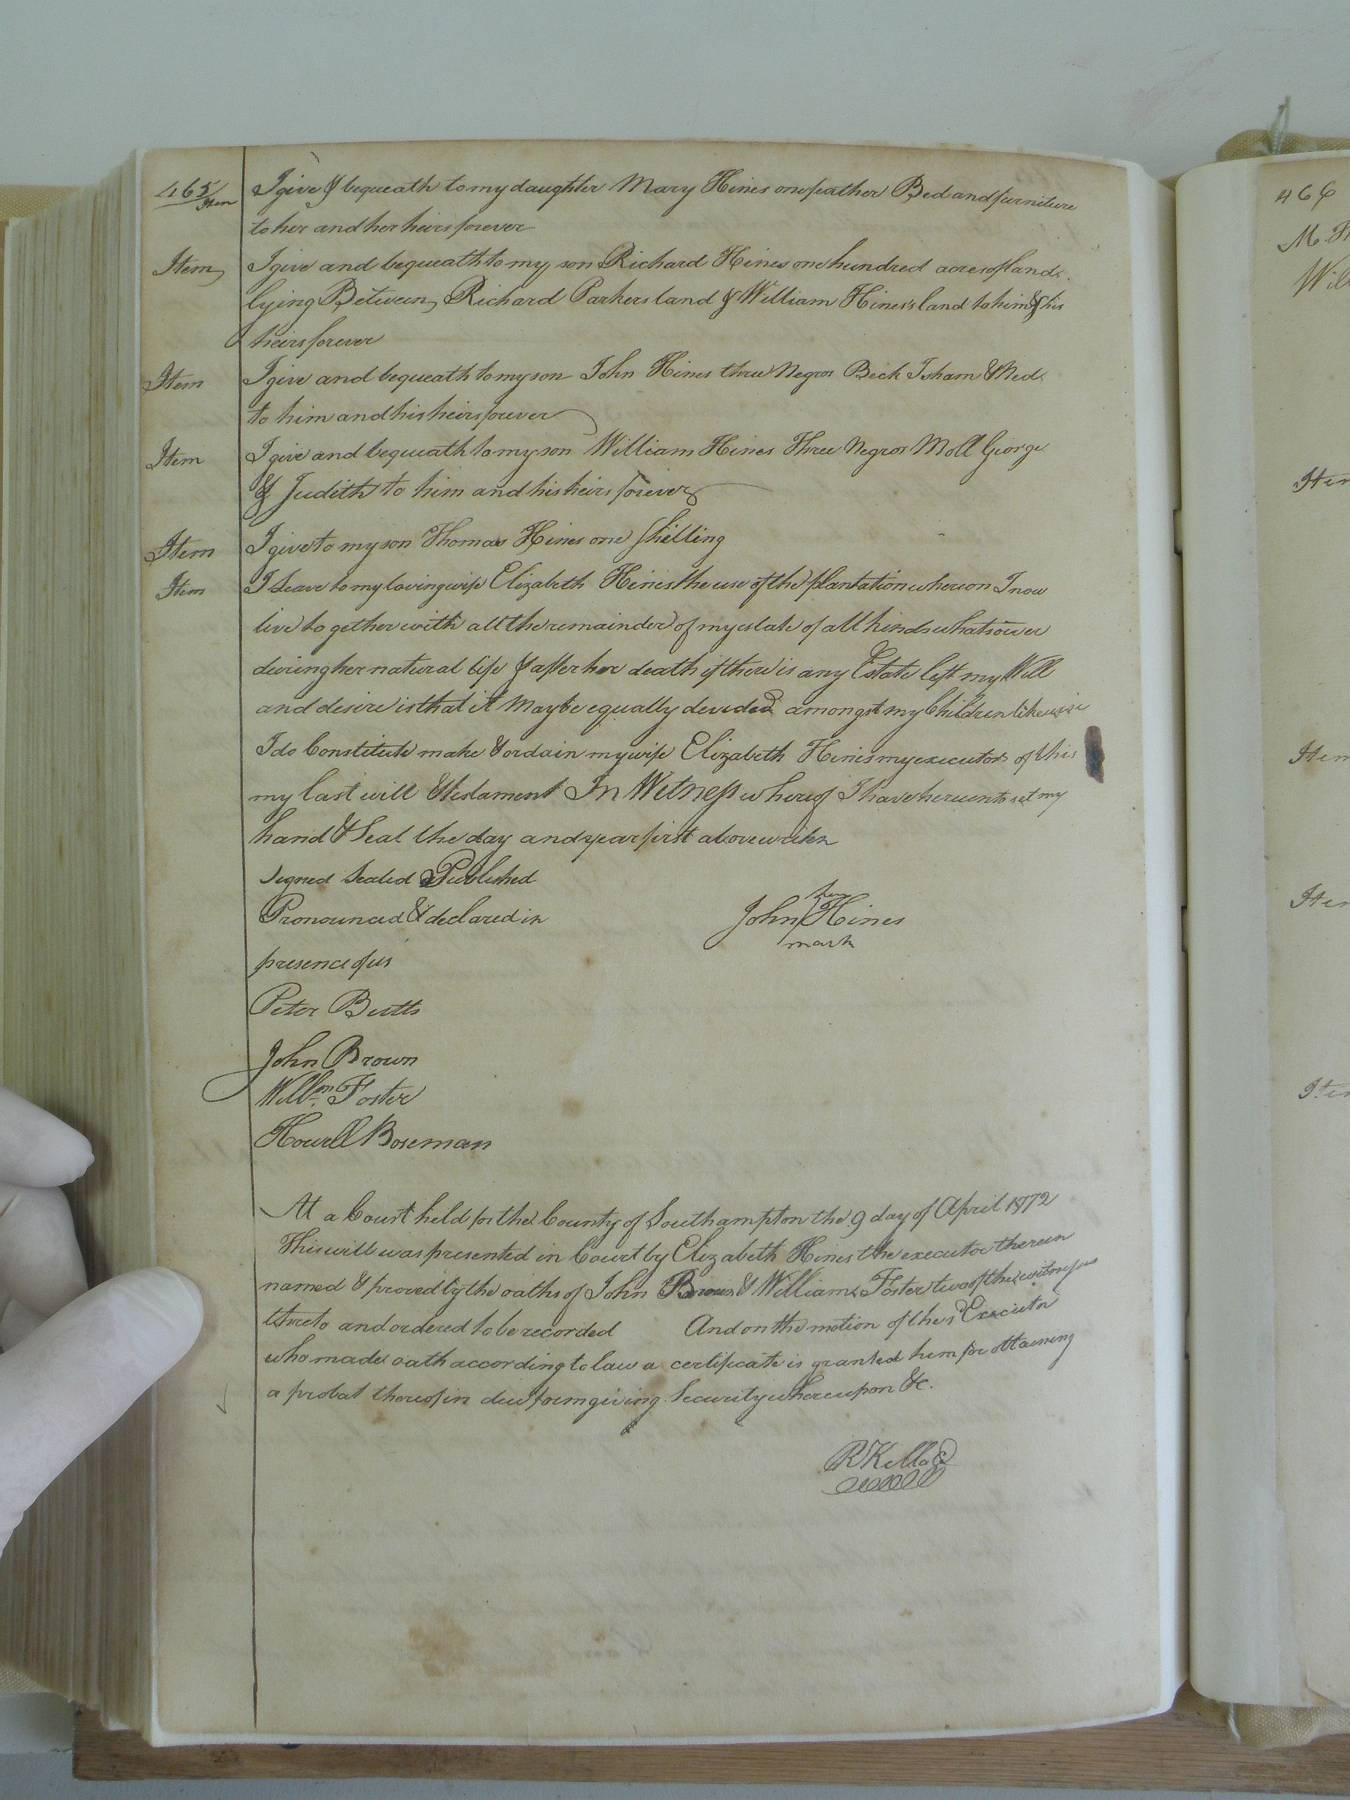 465
Item I give & bequeath to my daughter Mary Hines one feather Bed and furniture
to her and her heirs forever
Item I give and bequeath to my son Richard Hines one hundred acres of land
lying Between Richard Parkers land & William Hines's land to him & his
heirs forever
Item I give and bequeath to my son John Hines three Negros Beck Isham & Ned
to him and his heirs forever
Item I give and bequeath to my son William Hines Three Negros Moll George
& Judith to him and his heirs forever
Item I give to my son Thomas Hines one Shilling
Item I Leave to my loving wife Elizabeth Hines the use of the plantation whereon I now
live together with all the remainder of my estate of all kinds whatsoever
during her natural life & after her death if there is any Estate left my Will
and desire is that it May be equally devided amongst my Children likewise
I do Constitute make & ordain my wife Elizabeth Hines my executor of this
my last will & testament In Witness whereof I have hereunto set my
hand & Seal the day and year first above writen
Signed Sealed & Published
Pronounced & declared in
presence of us
his
John Hines
mark
Peter Butts
John Brown
Willm. Foster
Howell Boseman
At a Court held for the County of Southampton the 9 day of April 1772
This will was presented in Court by Elizabeth Hines the executor therein
named & proved by the oaths of John Brown & William Foster two of the witnesses
thereto and ordered to be recorded And on the motion of the sd Executor
who made oath according to law a certificate is granted him for obtaining
a probat thereof in due form giving Security whereupon &c.
R Kello
466
M
Wil
Item
Item
Item
Item